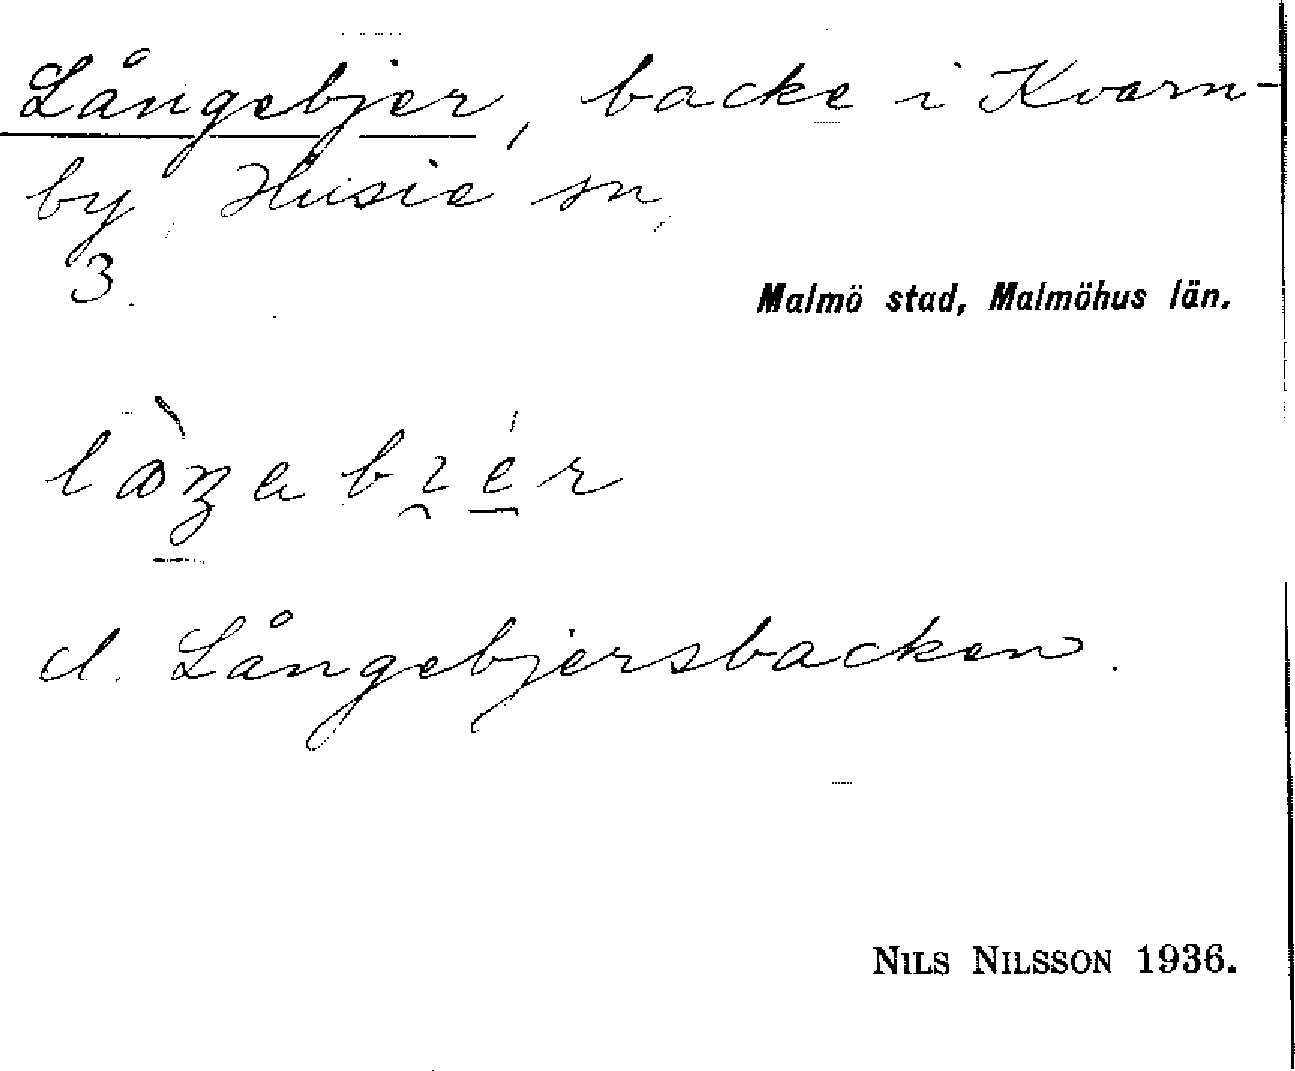 Långebjer, backe i Kvarn-
by, Husie sn,
3.
Malmö stad, Malmöhus län.
d. Långebjersbacken.
NILS NILSSON 1936.